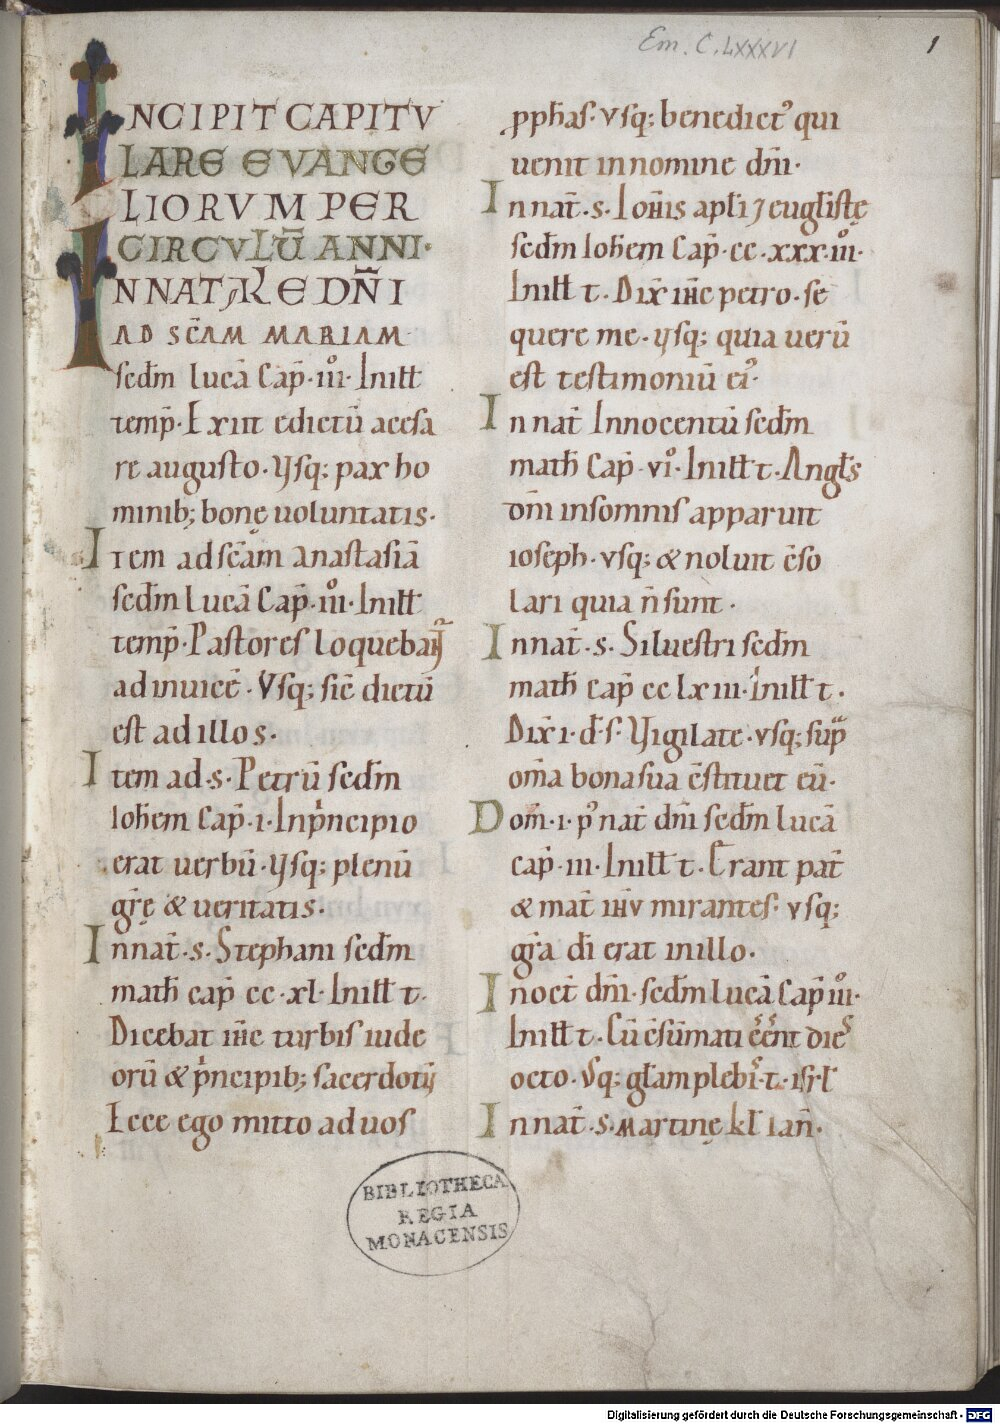 Em. C. LXXXVI
1
INCIPIT CAPITV
LARE EVANGE
LIORVM PER
CIRCVLŪ ANNI·
IN NATĀLE DN̄I
AD SC̄AM MARIAM
sed̄m lucā Cap̄·iiiͦ· Init̄
temp̄· Exiit edictū acesa
re augusto· Vsq; pax ho
minib; bonę uoluntatis·
Item ad sc̄am anastasiā
sed̄m Lucā Cap̄·iiiͦ· Init̄
temp̄· Pastores loquebant̄
ad inuicē· Vsq; sic̄ dictū
est ad illos·
Item ad·s·Petrū sed̄m
Ioh̄em Cap̄·i· Inp̍ncipio
erat uerbū· Vsq; plenū
gr̄ę & ueritatis·
In nat̄·s·Stephani sed̄m
math̄ cap̄ cc·xl· Init̄ t̄·
Dicebat ih̄c turbis iude
orū & p̍ncipib; sacerdotū
Ecce ego mitto ad uos
pph̄as· vsq; benedict᾿ qui
uenit in nomine dn̄i·
In nat̄·s·Ioh̄is apl̄i ⁊ eugl̄istę
sed̄m Ioh̄em Cap̄·cc·xxx·iiiͦ·
Init̄ t̄· Dix̄ ih̄c petro·se
quere me· Vsq; quia uerū
est testimoniū ei᾿·
In nat̄ Innocentū sed̄m
math̄ Cap̄·viͦ· Init̄ t̄· Angl̄s
dn̄i in somnis apparuit
ioseph· vsq; & noluit c̄so
lari quia n̄ sunt·
In nat̄·s·Siluestri sed̄m
math̄ cap̄ cc lxiii· Init̄ t̄·
Dix̄ i·d̄·s· Vigilate· vsq; sup̄
om̄a bona sua c̄stituet eū·
Dom̄·i·p᾿ nat̄ dn̄i sed̄m lucā
cap̄·iii· Init̄ t̄· Erant pat̄
& mat̄ ih̄v mirantes· vsq;
gr̄a dī erat in illo·
In oct̄ dn̄i· sed̄m Lucā Cap̄ iiiͦ·
Init̄ t̄· Cū c̄sūmati eēnt dies
octo· Vsq; gl̄am plebis·t·isr̄l
In nat̄·s·Martinę kl̄ Ian̄·
BIBLIOTHECA
REGIA
MONACENSIS
Digitalisierung gefördert durch die Deutsche Forschungsgemeinschaft - DFG